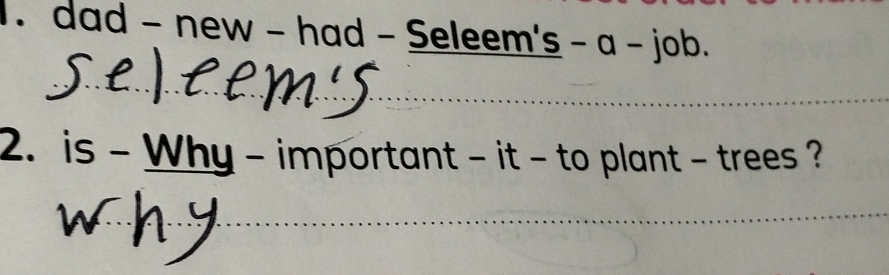 1. dad – new – had – Seleem's – a – job.
Seleem's
2. is – Why – important – it – to plant – trees ?
why